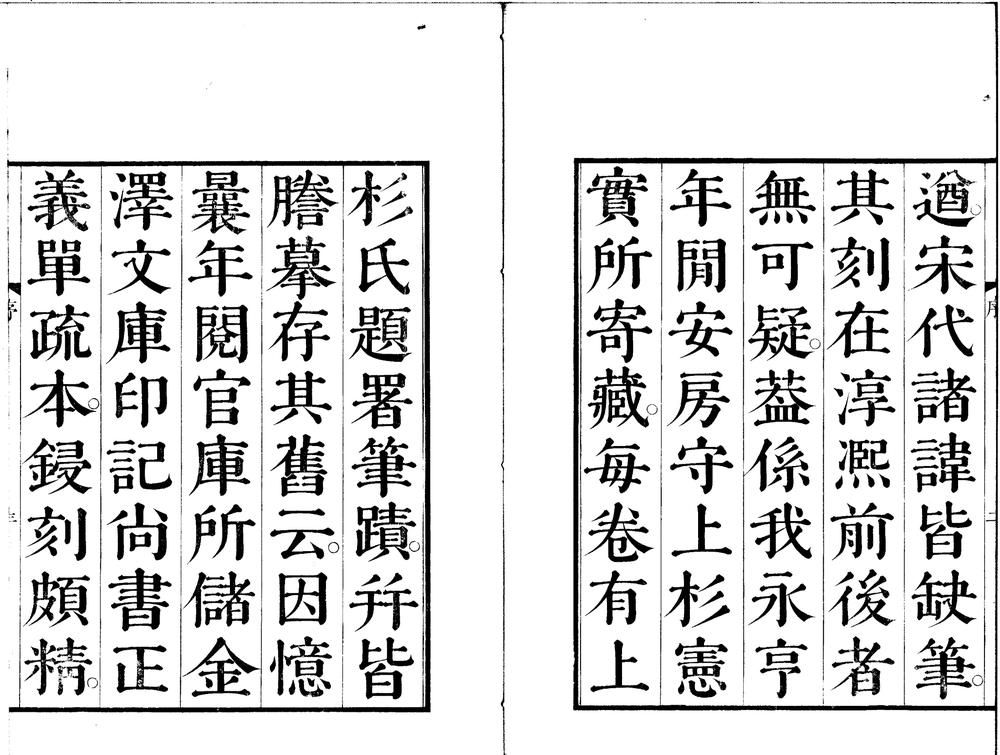 遒。宋代諸諱皆缺筆。
其刻在淳熈前後者
無可疑。葢係我永亨
年閒安房守上杉憲
實所寄藏。每卷有上
杉氏題署筆蹟。并皆
謄摹存其舊云。因憶
曩年閱官庫所儲金
澤文庫印記尚書正
義單疏本。鋟刻頗精。
序
二